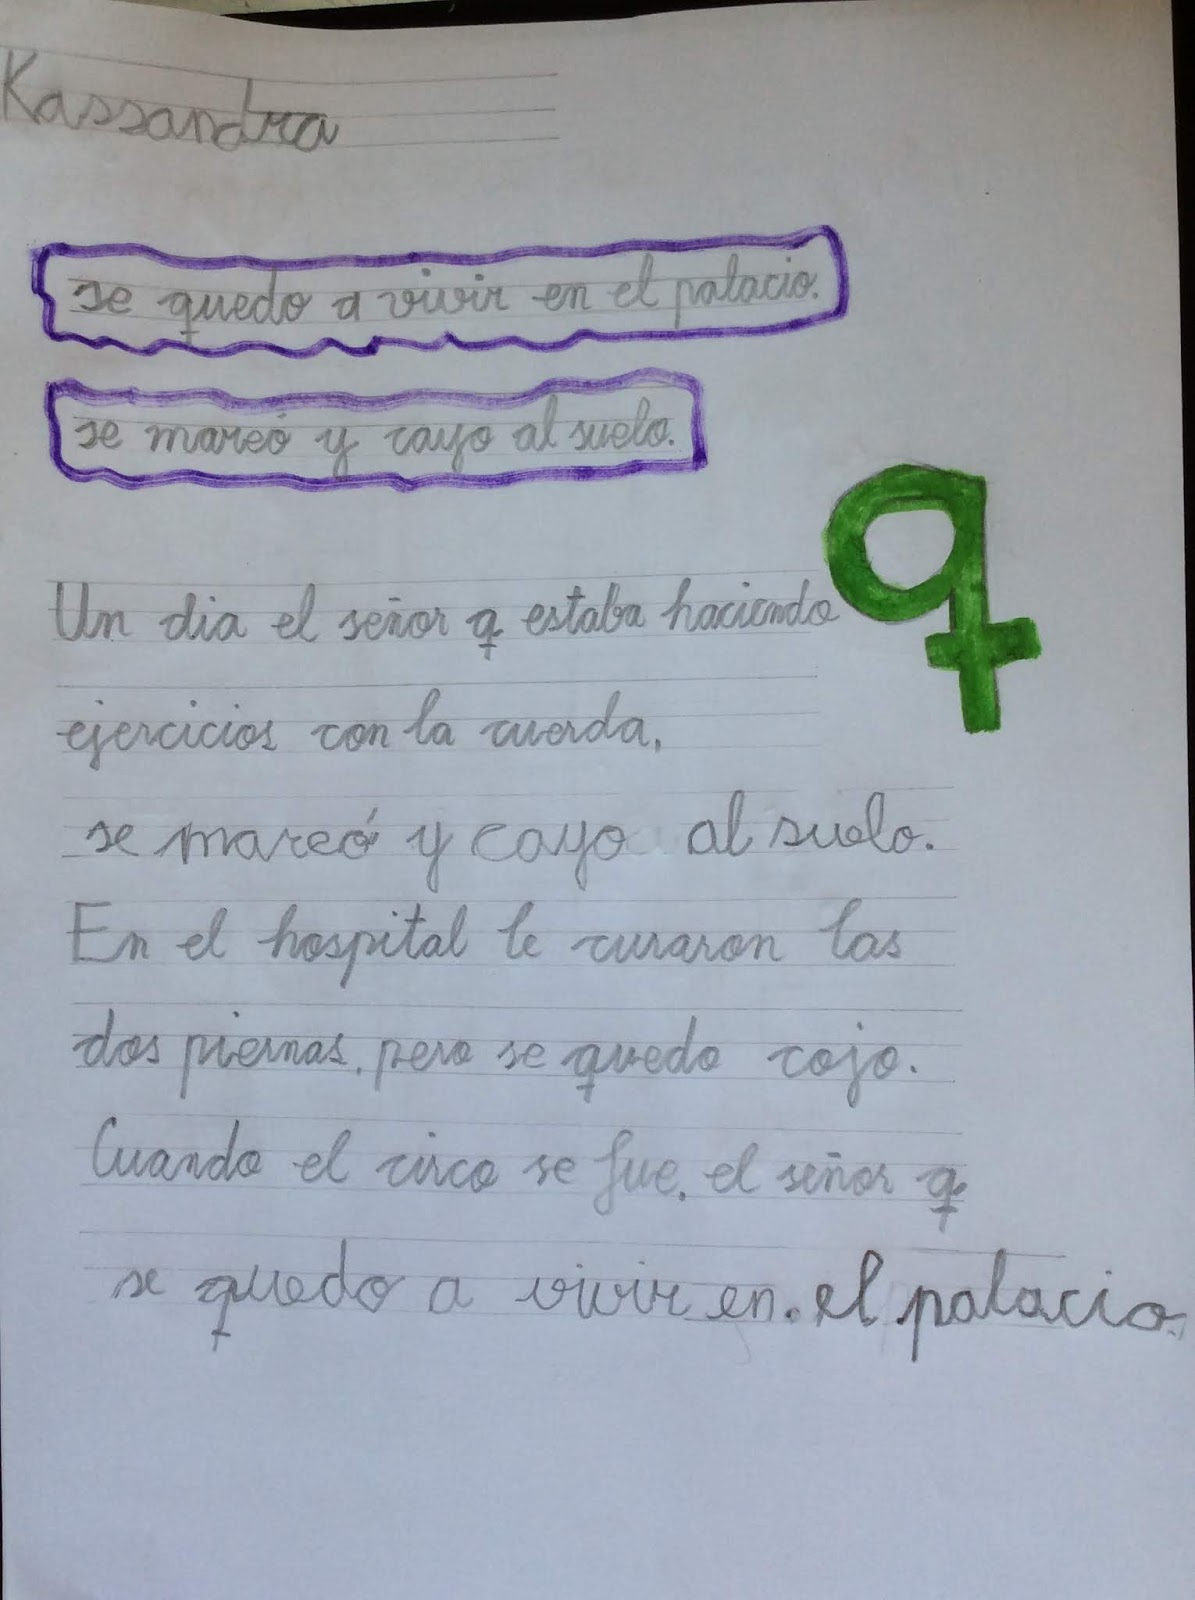 Kassandra
se quedo a vivir en el palacio.
se mareó y cayo al suelo.
q
Un dia el señor q estaba haciendo
ejercicios con la cuerda,
se mareó y cayo al suelo.
En el hospital le curaron las
dos piernas, pero se quedo cojo.
Cuando el circo se fue, el señor q
se quedo a vivir en. el palacio.